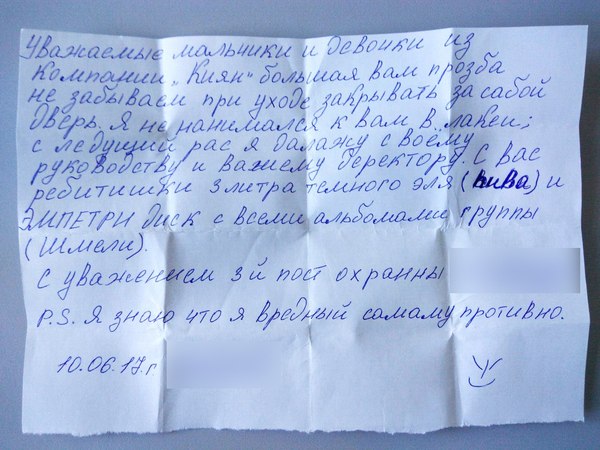 Уважаемые мальчики и девочки из
Компании „Киян" большая вам прозба
не забываем при уходе закрывать за сабой
дверь. Я не нанимался к вам в.. лакеи;
с ледущий рас я далажу с воему
руководству и важему деректору. С вас
ребитишки 3 литра темного эля (пива) и
ЭМПЕТРИ диск с всеми альбомами группы
(Шмели).
С уважением 3й пост охранны
P.S. Я знаю что я вредный самаму противно.
10.06.17.г